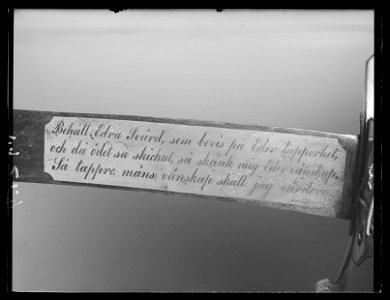 Behåll Edra Svärd, som bevis på Eder tapperhet,
och då ödet så skickat, så skänk mig Eder vänskap.
Så tappre mäns vänskap skall jag värdera.